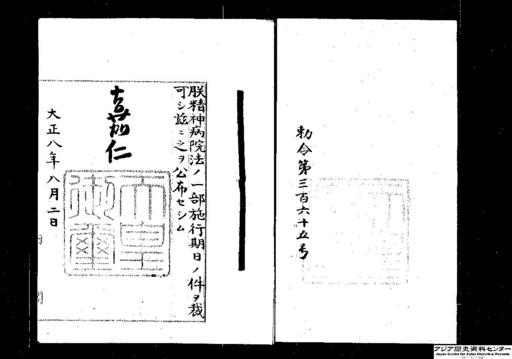 勅令第三百六十五号
朕精神病院法ノ一部施行期日ノ件ヲ裁
可シ茲ニ之ヲ公布セシム
嘉仁
天皇御璽
大正八年八月二日
アジア歴史資料センター
Japan Center for Asian Historical Records